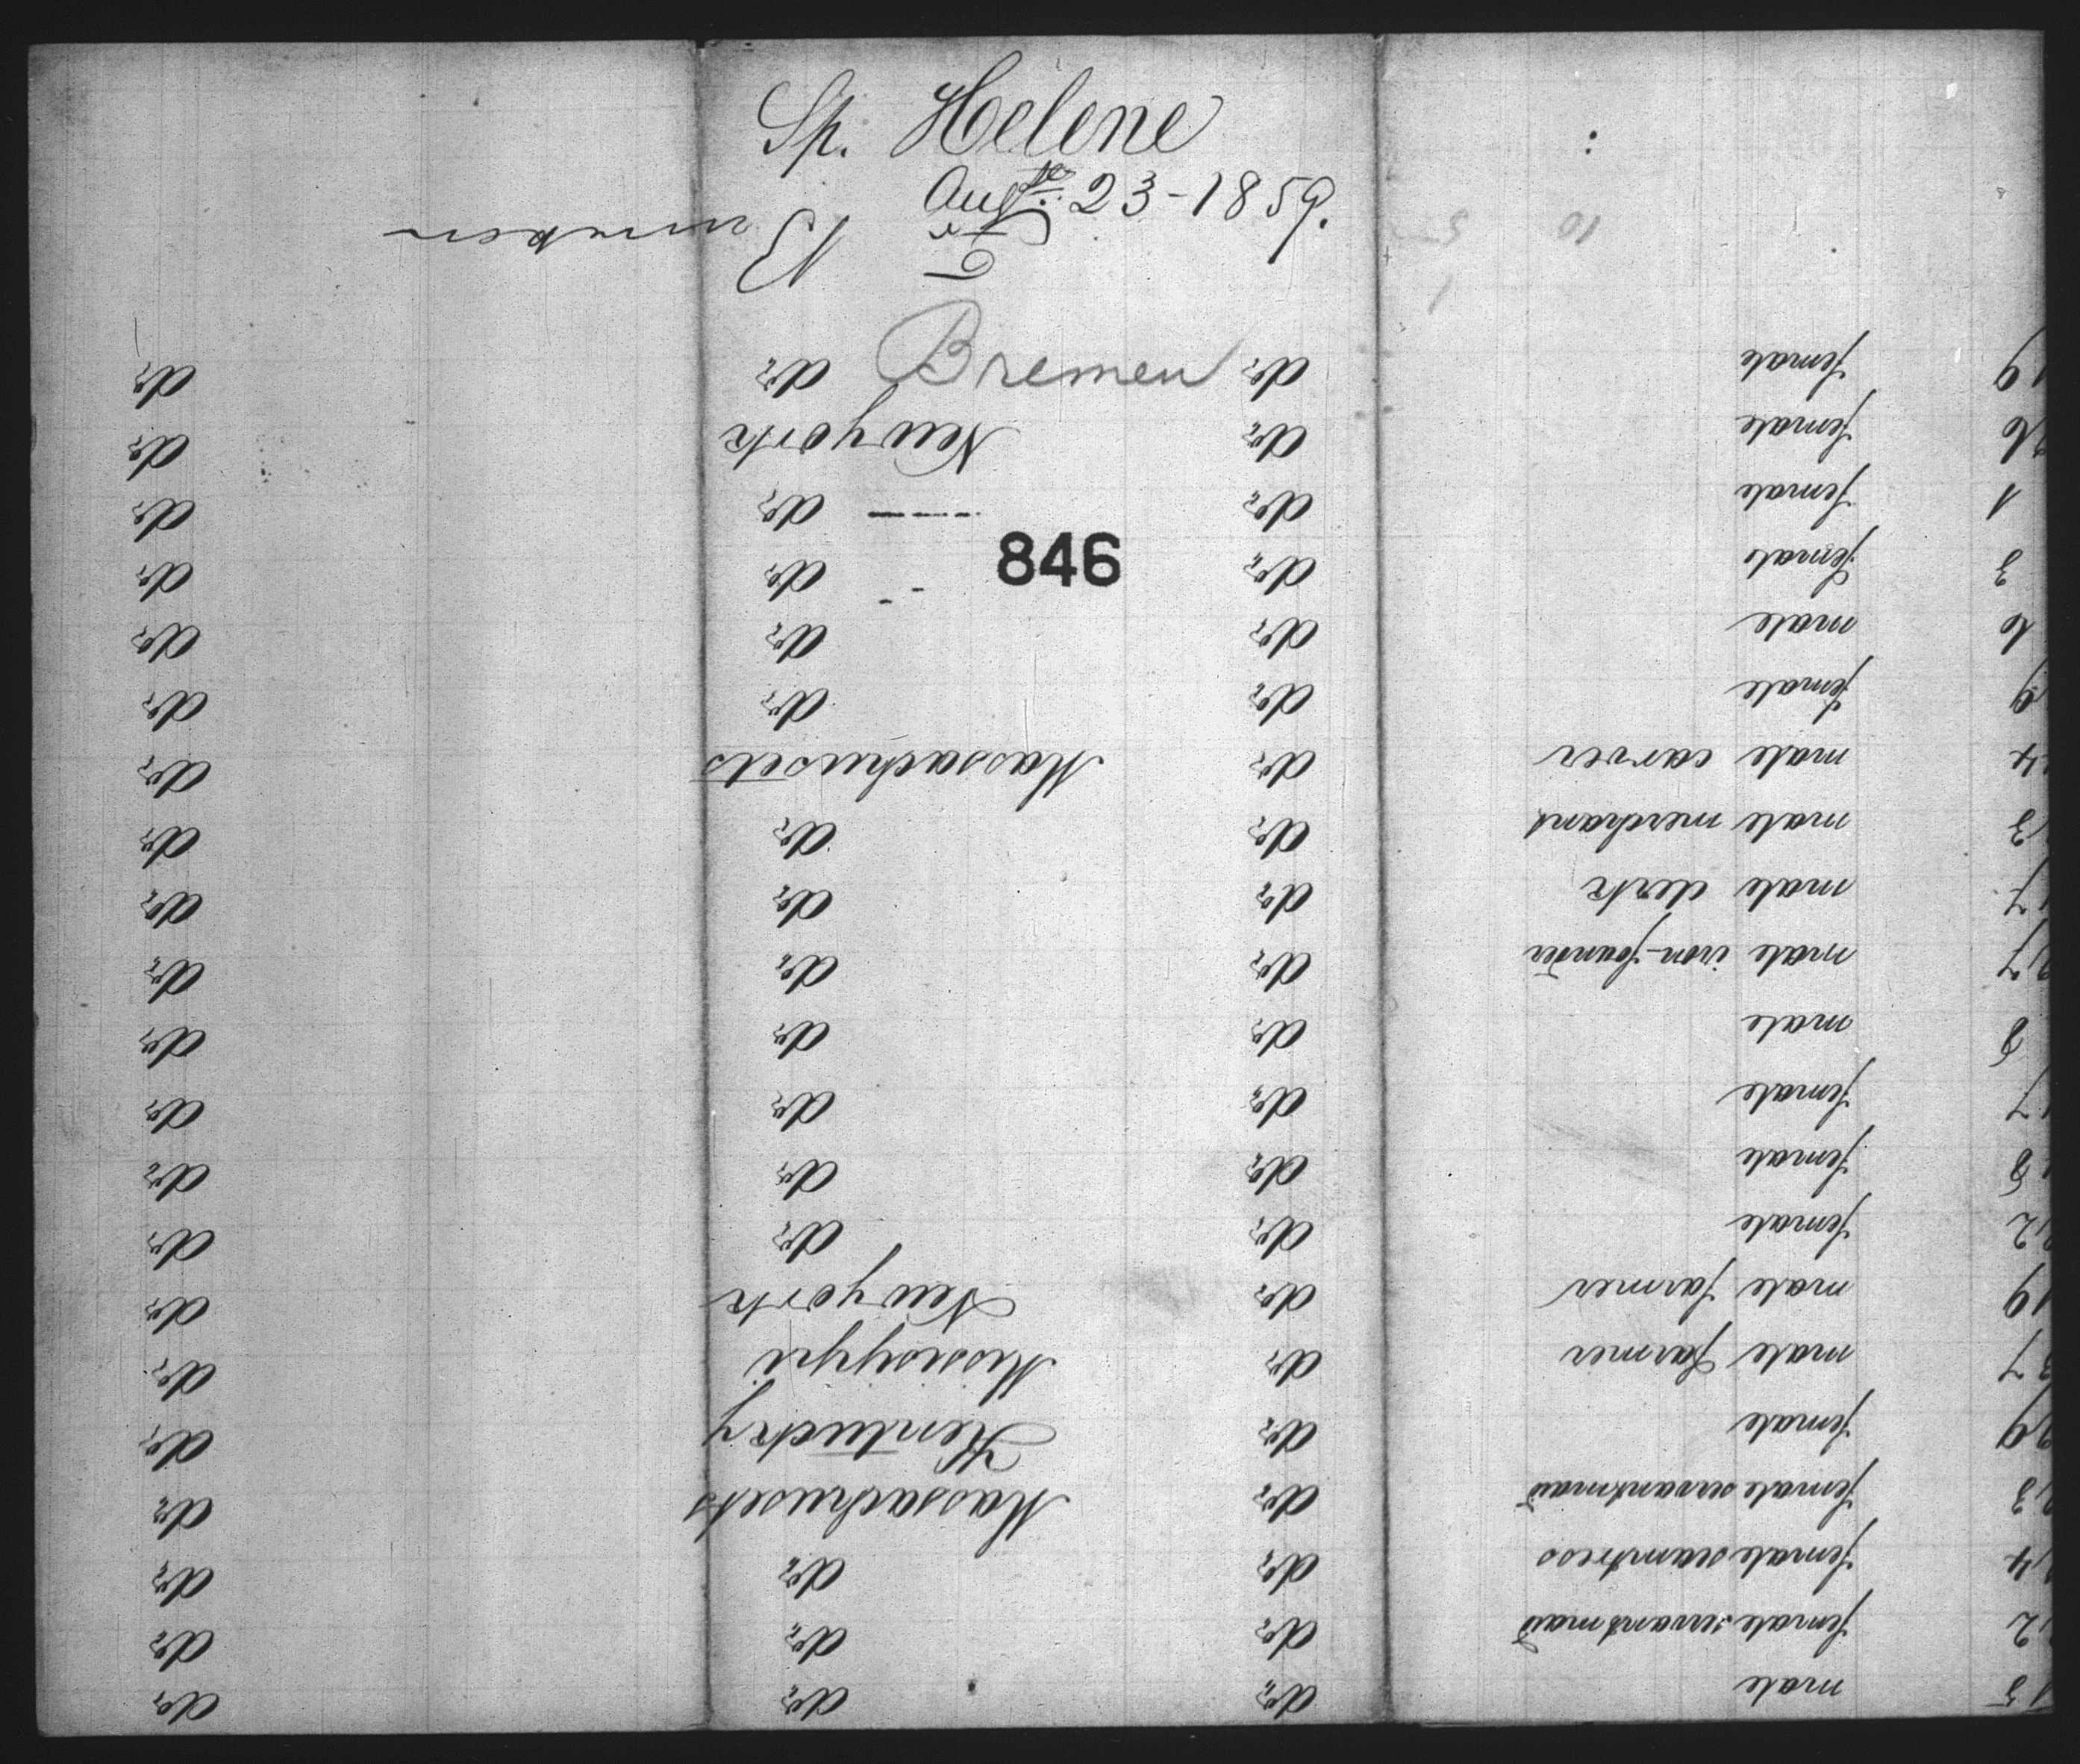 Sp. Helene
Augt. 23-1859.
Bremen
846
male do do do
female servantmaid do do do
female seamtress do do do
female servantmaid do Massachusets do
female do Kentucky do
male farmer do Missisyppi do
19 male farmer do Newyork do
female do do do
18 female do do do
17 female do do do
8 male do do do
27 male iron-founder do do do
17 male clerk do do do
male merchant do do do
male carver do Massachusets do
9 female do do do
6 male do do do
3 female do do do
1 female do do do
26 female do Newyork do
19 female do do do